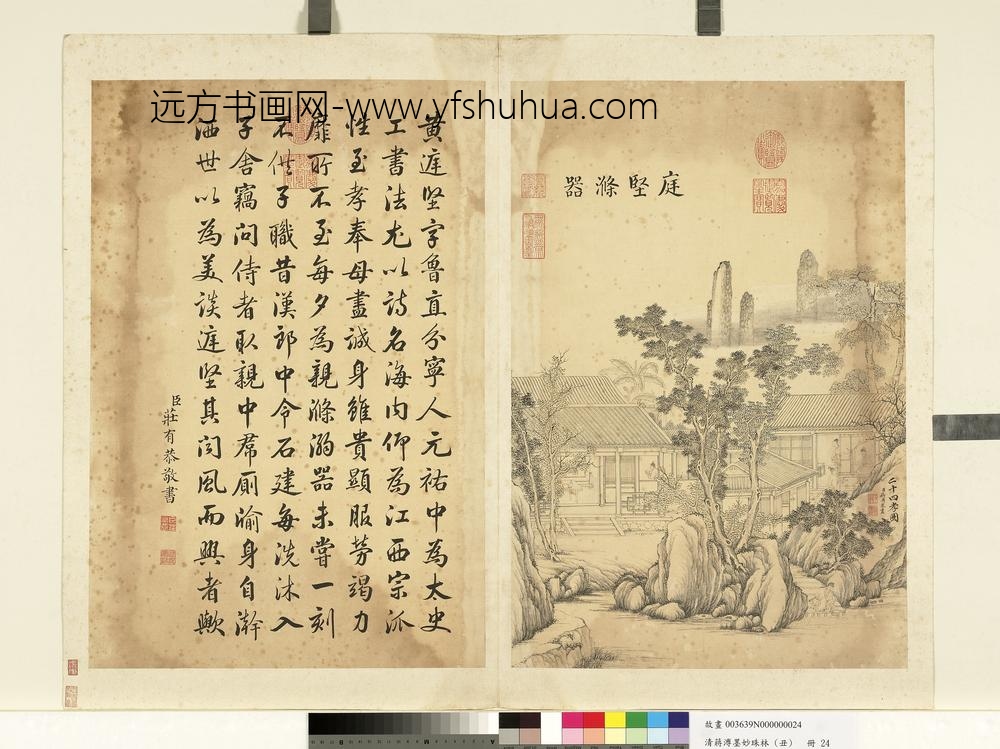 远方书画网-www.yfshuhua.com
庭堅滌器
二十四孝圖
黃庭堅字魯直分寧人元祐中為太史
工書法尤以詩名海內仰為江西宗派
性至孝奉母盡誠身雖貴顯服勞竭力
靡所不至每夕為親滌溺器未嘗一刻
不供子職昔漢郎中令石建每洗沐入
子舍竊問侍者取親中帬廁牏身自澣
洒世以為美談庭堅其聞風而興者歟
臣莊有恭敬書
故畫 003639N000000024
清蔣溥墨妙珠林（丑） 冊 24